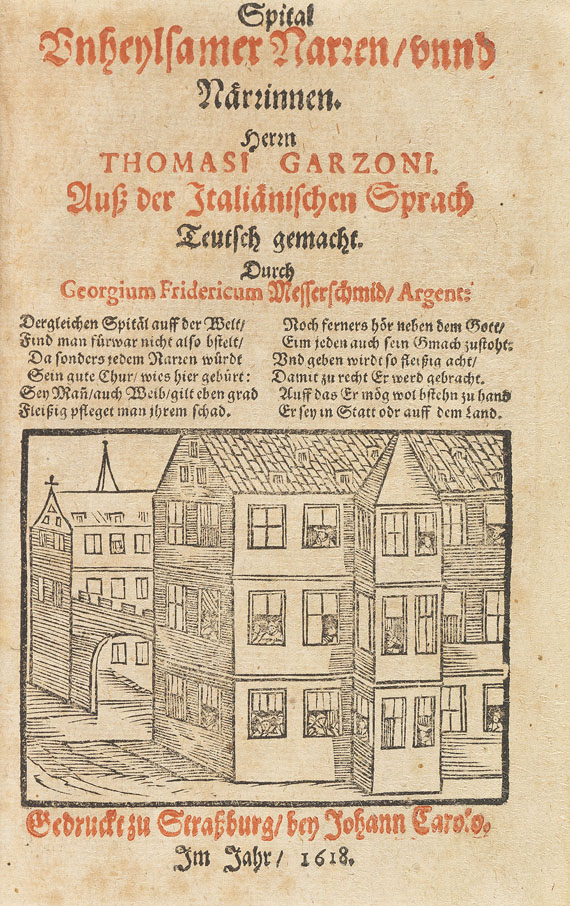 Spital
Vnheylsamer Narren/vnnd
Närrinnen.
Herrn
THOMASI GARZONI.
Auß der Italiänischen Sprach
Teutsch gemacht.
Durch
Georgium Fridericum Messerschmid/ Argent:
Dergleichen Spitäl auff der Welt/
Find man fürwar nicht also bstelt/
Da sonders jedem Narren würdt
Sein gute Chur/ wies hier gebürt:
Sey Mañ/auch Weib/gilt eben grad
Fleißig pfleget man jhrem schad.
Noch ferners hör neben dem Gott/
Eim jeden auch sein Gmach zustoht:
Vnd geben wirdt so fleißig acht/
Damit zu recht Er werd gebracht.
Auff das Er mög wol bstehn zu hand
Er sey in Statt odr auff dem Land.
Gedruckt zu Straßburg/ bey Johann Carolo.
Im Jahr/ 1618.